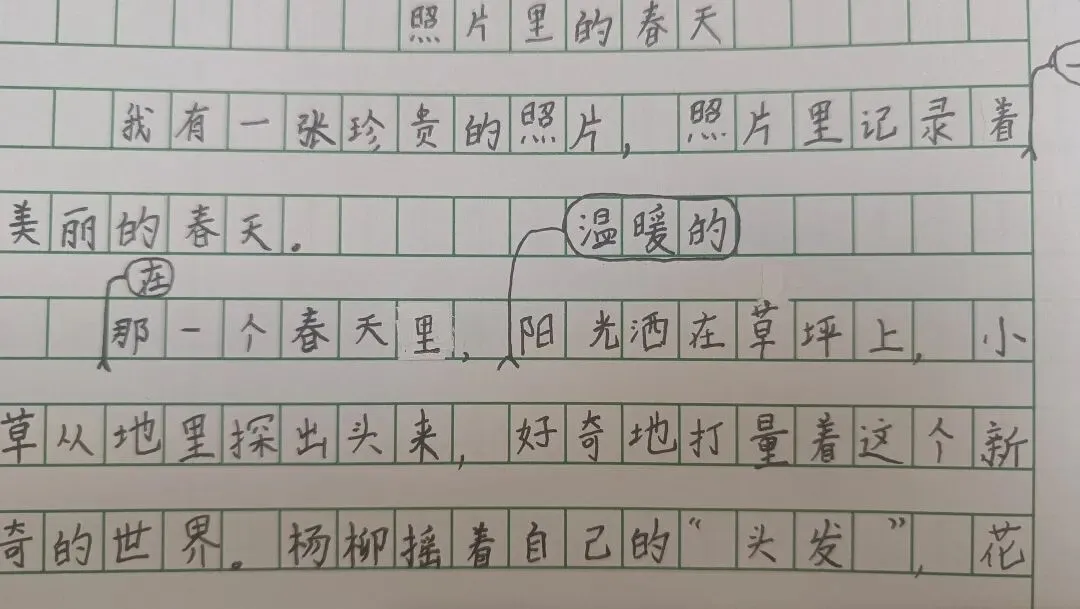 照片里的春天
我有一张珍贵的照片，照片里记录着一
美丽的春天。
温暖的
在
那一个春天里，阳光洒在草坪上，小
草从地里探出头来，好奇地打量着这个新
奇的世界。杨柳摇着自己的“头发”，花